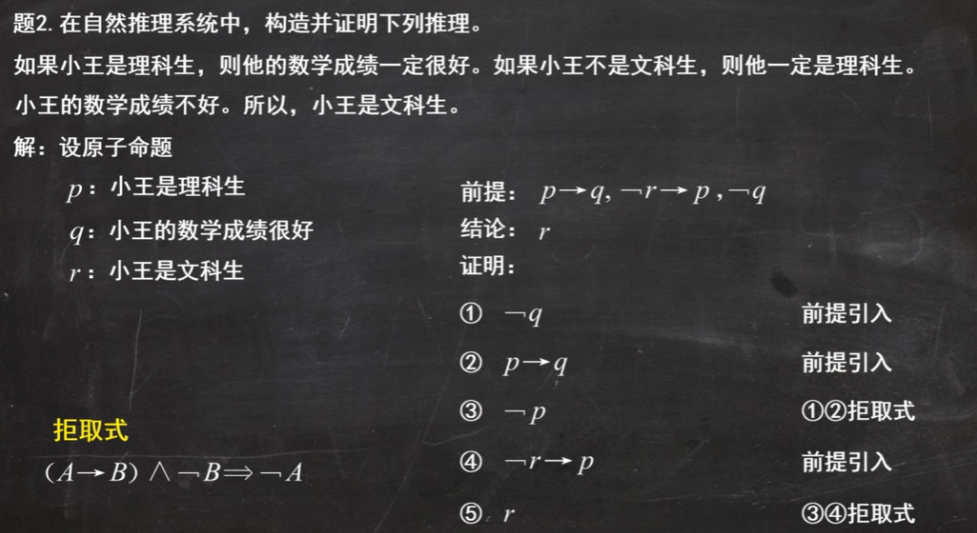 题2. 在自然推理系统中，构造并证明下列推理。
如果小王是理科生，则他的数学成绩一定很好。如果小王不是文科生，则他一定是理科生。
小王的数学成绩不好。所以，小王是文科生。
解：设原子命题
p：小王是理科生
q：小王的数学成绩很好
r：小王是文科生
前提： p→q, ¬r→p ,¬q
结论： r
证明：
① ¬q 前提引入
② p→q 前提引入
③ ¬p ①②拒取式
④ ¬r→p 前提引入
⑤ r ③④拒取式
拒取式
（A→B）∧¬B⇒¬A